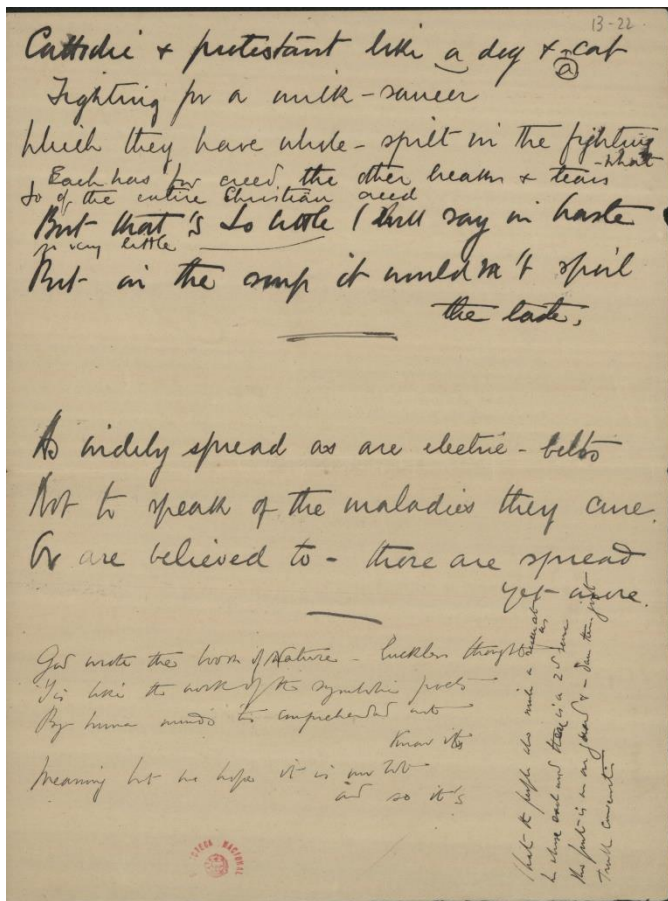 13-22.
Catholic & protestant like a dog & cat
a
Fighting for a milk-saucer
Which they have whole-spilt in the fighting
-what
Each has for creed the other breaks & tears
So of the entire Christian creed
But that's so little I shall say in haste
so very little
But in the soup it wouldn't spoil
the taste.
As widely spread as are electric-belts
Not to speak of the maladies they cure.
Or are believed to - these are spread
yet more.
God wrote the book of Nature - luckless thought
'Tis like the work of the symbolistic poets
By human minds to comprehended not
Know its
Meaning but we hope it is
and so it's
that the people
there is a 2d sense
this poet is on guard &
Truth
BIBLIOTECA NACIONAL